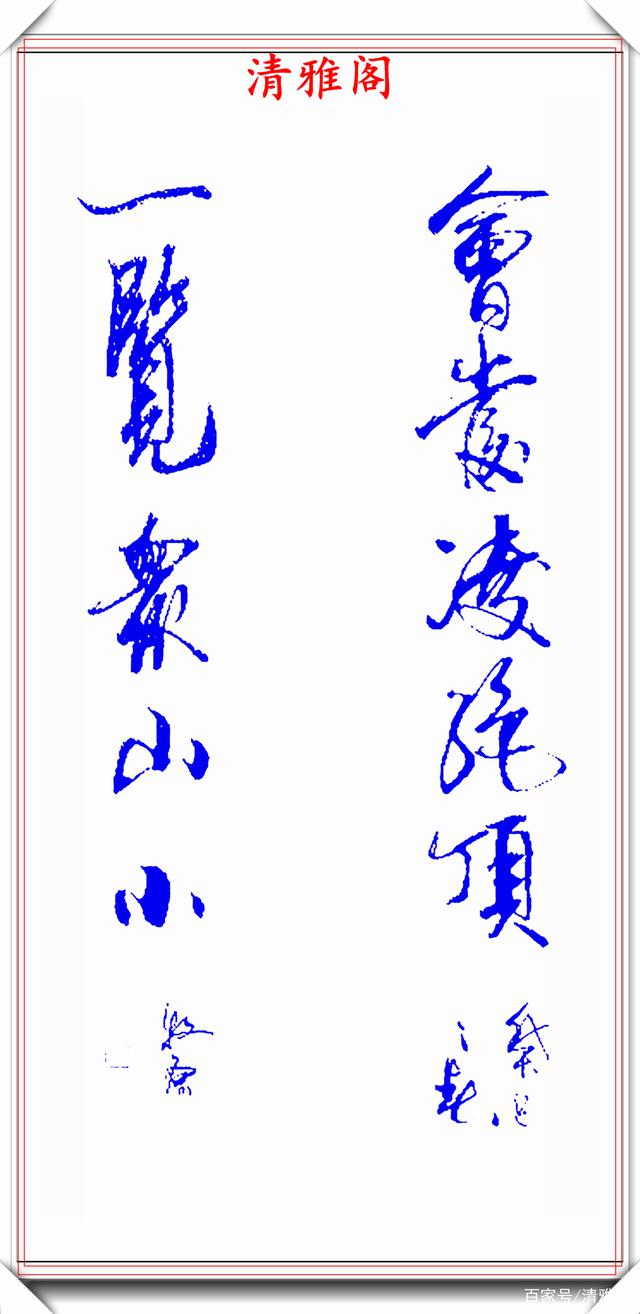 清雅阁
會當凌絕頂
一覽衆山小
百家号/清雅